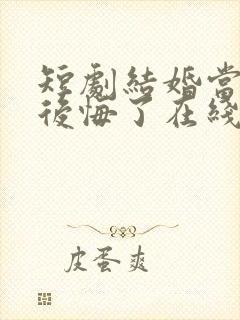 短劇結婚當
後悔了在綫
皮蛋爽